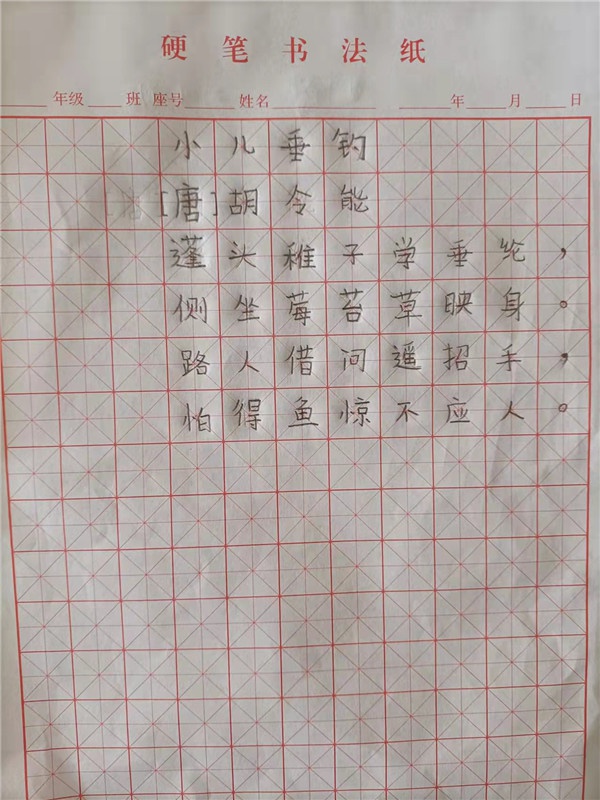 硬笔书法纸
年级 班 座号 姓名 年 月 日
小儿垂钓
[唐]胡令能
蓬头稚子学垂纶，
侧坐莓苔草映身。
路人借问遥招手，
怕得鱼惊不应人。